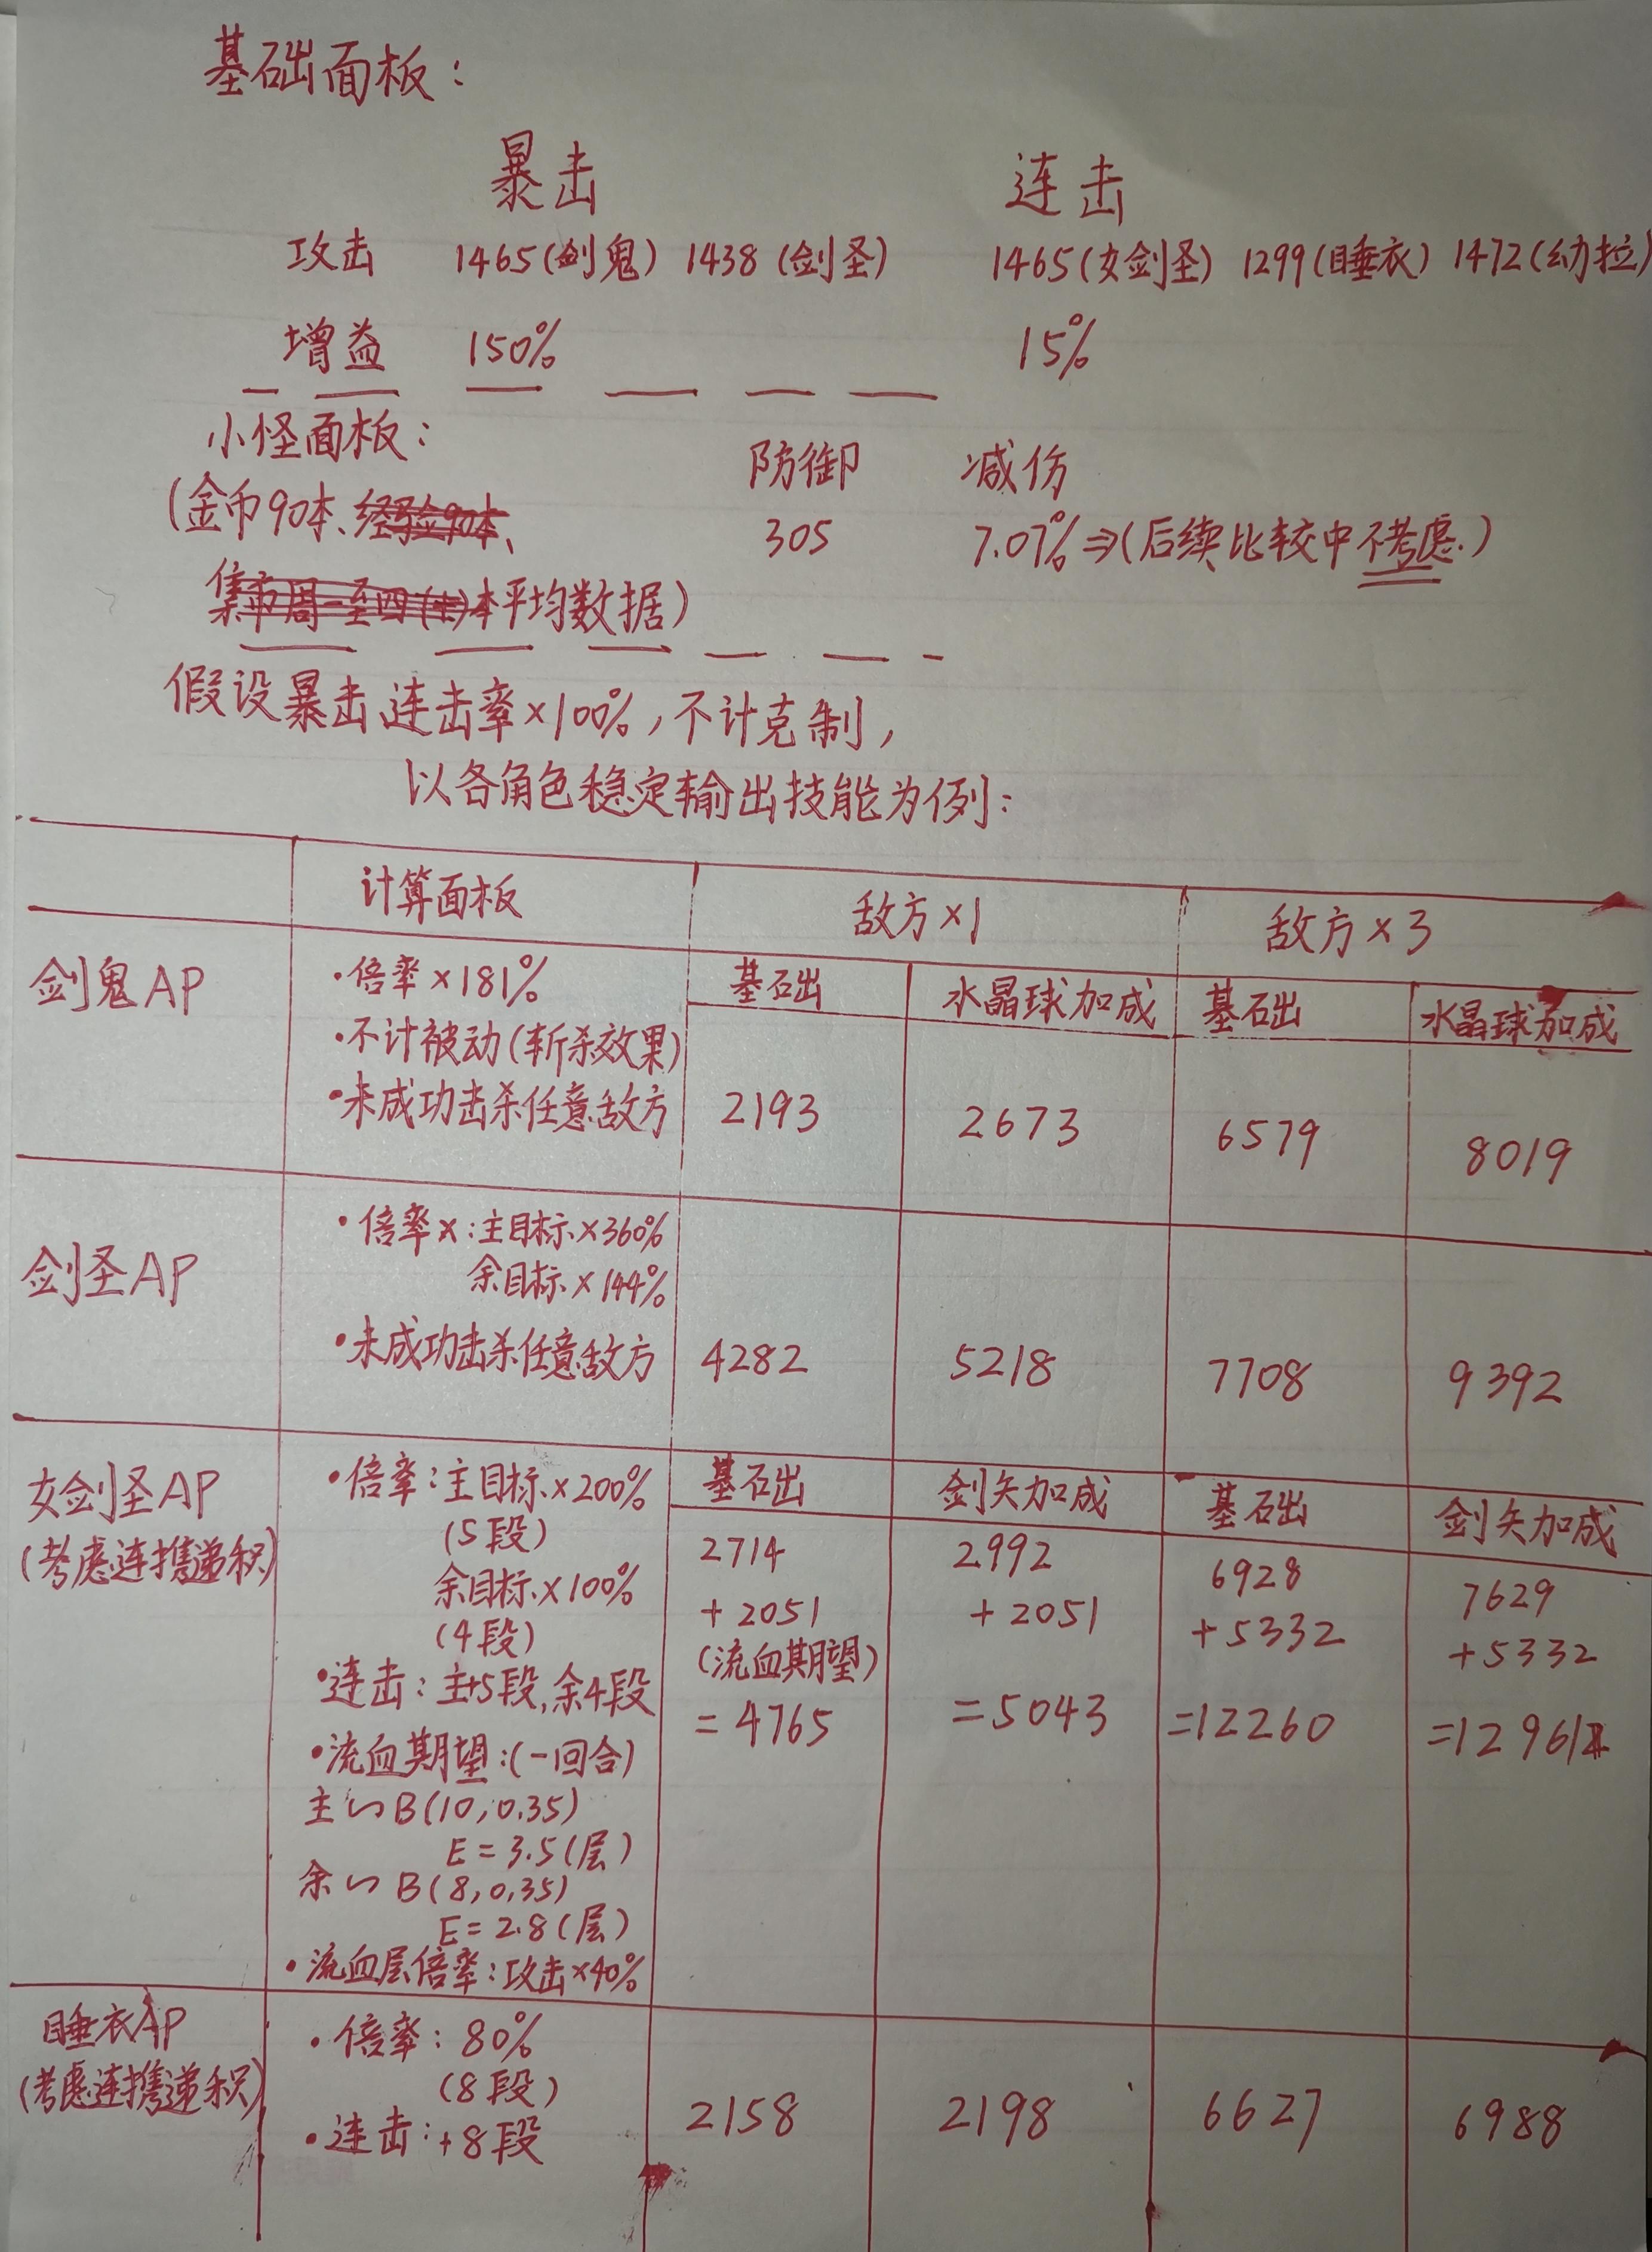 基础面板：
暴击 连击
攻击 1465(剑鬼) 1438(剑圣) 1465(女剑圣) 1299(睡衣) 1472(幼拉)
增益 150% 15%
小怪面板：
防御 减伤
(金币90本、经验90本、
305 7.07%⇒(后续比较中不考虑.)
集市周一至四(土)本平均数据)
假设暴击、连击率×100%，不计克制，
以各角色稳定输出技能为例：
计算面板 敌方×1 敌方×3
基础 水晶球加成 基础 水晶球加成
剑鬼AP
·倍率×181%
·不计被动(斩杀效果)
·未成功击杀任意敌方
2193 2673 6579 8019
剑圣AP
·倍率×：主目标×360%
余目标×144%
·未成功击杀任意敌方
4282 5218 7708 9392
女剑圣AP
(考虑连携递积)
·倍率：主目标×200%
(5段)
余目标×100%
(4段)
·连击：主+5段,余4段
·流血期望：(一回合)
主∽B(10,0.35)
E=3.5(层)
余∽B(8,0.35)
E=2.8(层)
·流血层倍率：攻击×40%
基础 剑矢加成 基础 剑矢加成
2714 2992 6928 7629
+2051 +2051 +5332 +5332
(流血期望)
=4765 =5043 =12260 =12961
睡衣AP
(考虑连携递积)
·倍率：80%
(8段)
·连击：+8段
2158 2198 6627 6988